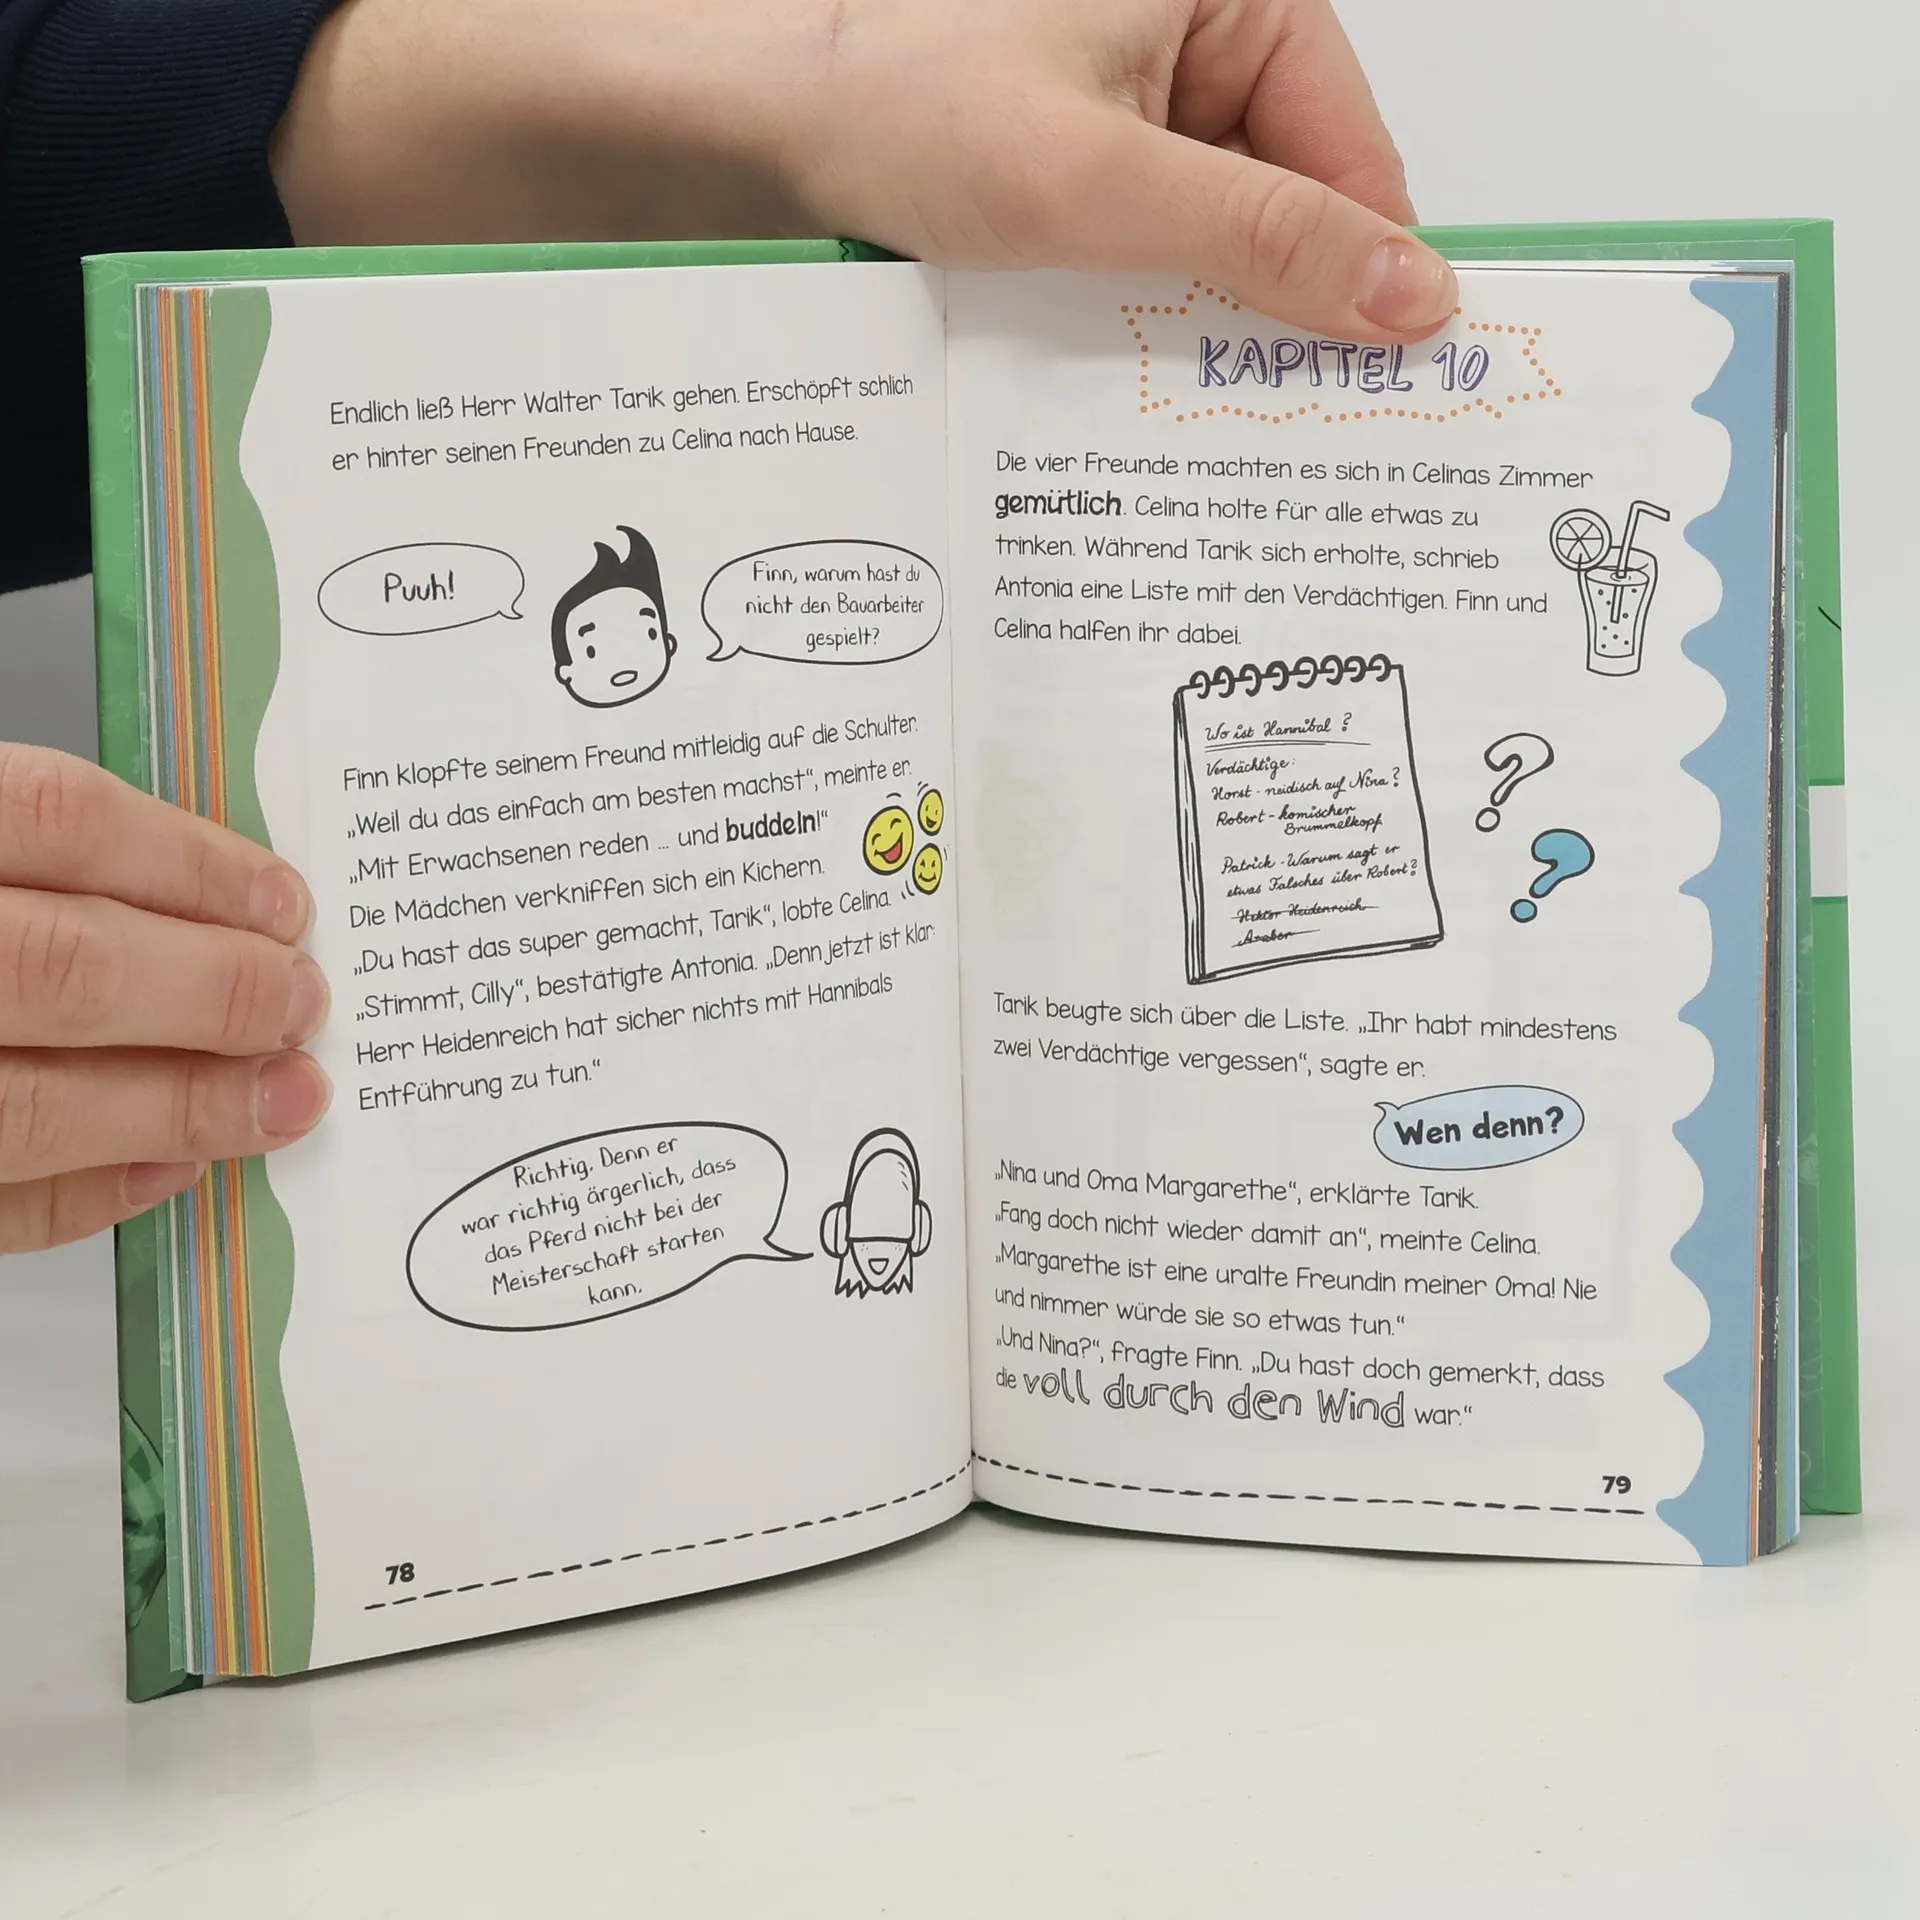 Endlich ließ Herr Walter Tarik gehen. Erschöpft schlich
er hinter seinen Freunden zu Celina nach Hause.
Puuh!
Finn, warum hast du
nicht den Bauarbeiter
gespielt?
Finn klopfte seinem Freund mitleidig auf die Schulter.
„Weil du das einfach am besten machst“, meinte er.
„Mit Erwachsenen reden ... und buddeln!“
Die Mädchen verkniffen sich ein Kichern.
„Du hast das super gemacht, Tarik“, lobte Celina.
„Stimmt, Cilly“, bestätigte Antonia. „Denn jetzt ist klar:
Herr Heidenreich hat sicher nichts mit Hannibals
Entführung zu tun.“
Richtig. Denn er
war richtig ärgerlich, dass
das Pferd nicht bei der
Meisterschaft starten
kann.
78
KAPITEL 10
Die vier Freunde machten es sich in Celinas Zimmer
gemütlich. Celina holte für alle etwas zu
trinken. Während Tarik sich erholte, schrieb
Antonia eine Liste mit den Verdächtigen. Finn und
Celina halfen ihr dabei.
Wo ist Hannibal?
Verdächtige:
Horst - neidisch auf Nina?
Robert - komischer
Brummelkopf
Patrick - Warum sagt er
etwas Falsches über Robert?
Hektor Heidenreich
Araber
Tarik beugte sich über die Liste. „Ihr habt mindestens
zwei Verdächtige vergessen“, sagte er.
Wen denn?
„Nina und Oma Margarethe“, erklärte Tarik.
„Fang doch nicht wieder damit an“, meinte Celina.
„Margarethe ist eine uralte Freundin meiner Oma! Nie
und nimmer würde sie so etwas tun.“
„Und Nina?“, fragte Finn. „Du hast doch gemerkt, dass
die voll durch den Wind war.“
79